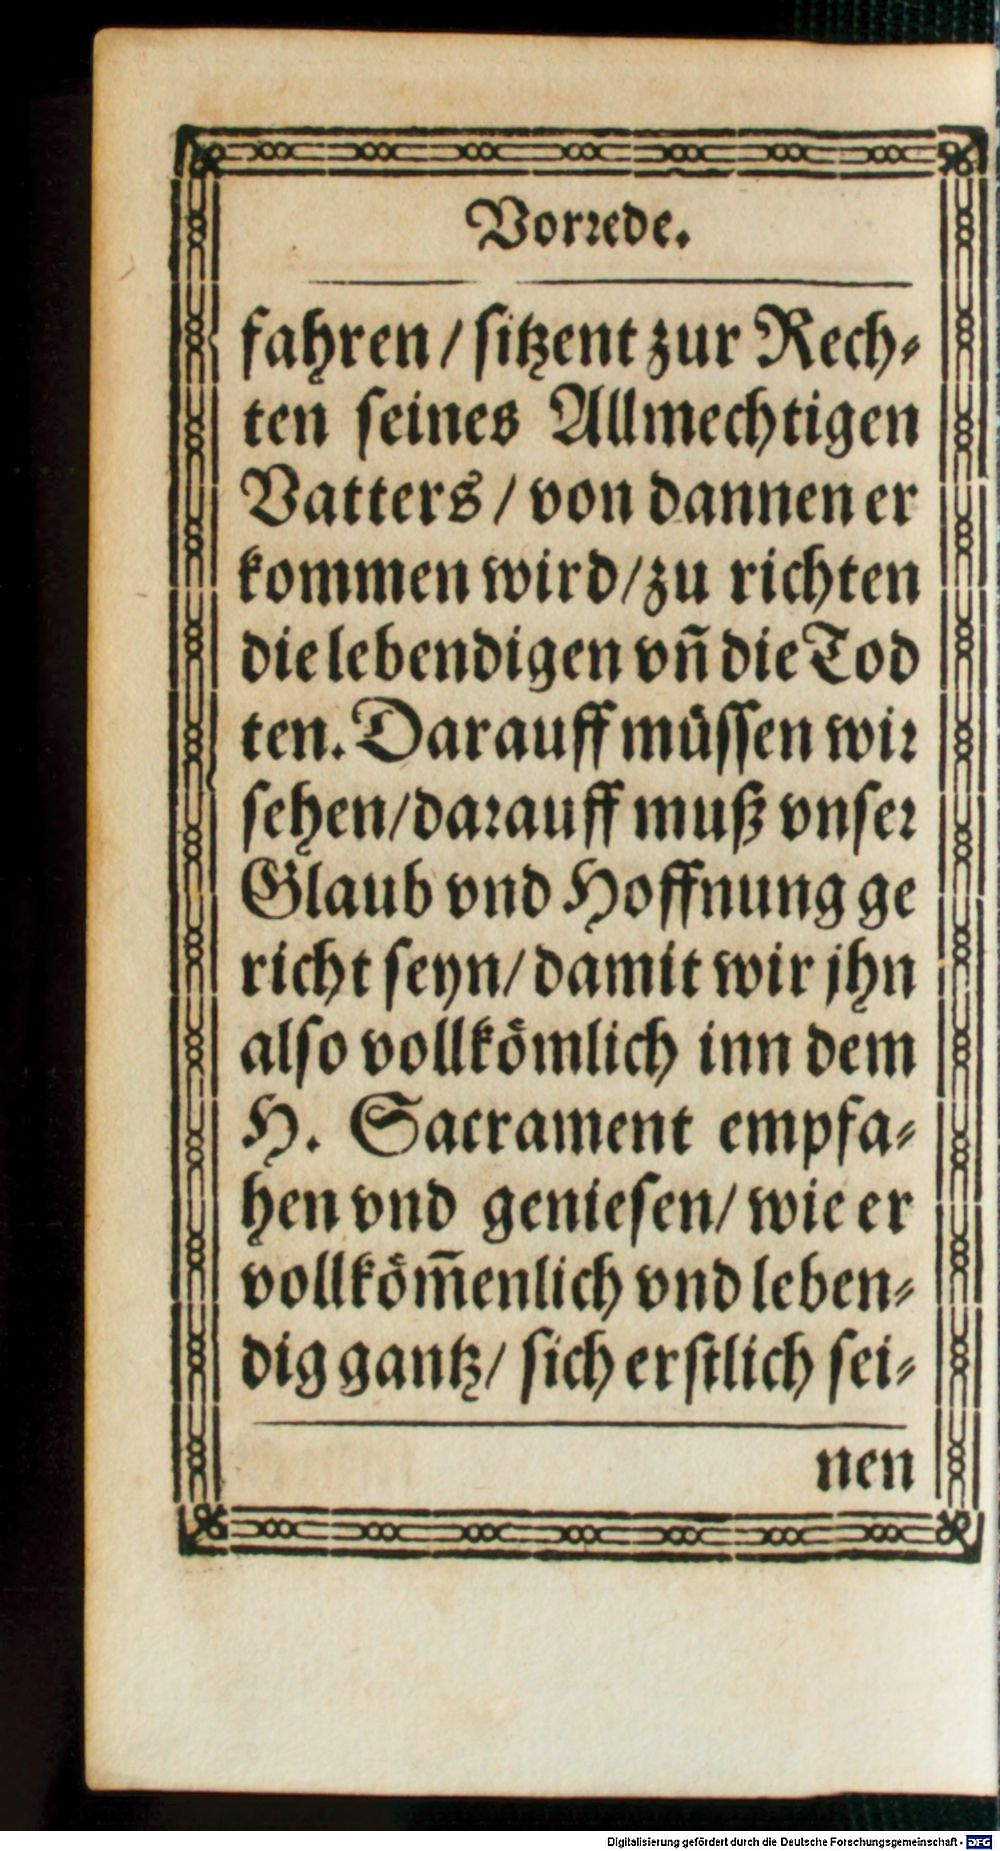 Vorꝛede.
fahren / ſitzent zur Rech⸗
ten ſeines Allmechtigen
Vatters / von dannen er
kommen wird / zu richten
die lebendigen vñ die Tod
ten. Darauff müſſen wiꝛ
ſehen / daꝛauff muß vnſeꝛ
Glaub vnd Hoffnung ge
richt ſeyn / damit wir jhn
alſo vollkoͤmlich inn dem
H. Sacrament empfa⸗
hen vnd genieſen / wie er
vollkoͤm̃enlich vnd leben⸗
dig gantz / ſich erſtlich ſei⸗
nen
Digitalisierung gefördert durch die Deutsche Forschungsgemeinschaft - DFG